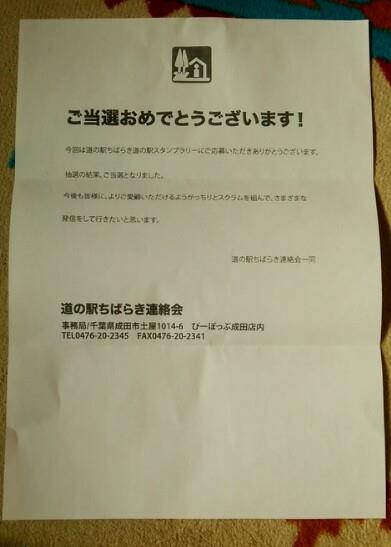 ご当選おめでとうございます！
今回は道の駅ちばらき道の駅スタンプラリーにご応募いただきありがとうございます。
抽選の結果、ご当選となりました。
今後も皆様に、よりご愛顧いただけるようがっちりとスクラムを組んで、さまざまな
発信をして行きたいと思います。
道の駅ちばらき連絡会一同
道の駅ちばらき連絡会
事務局/千葉県成田市土屋1014-6　びーぽっぷ成田店内
TEL0476-20-2345　FAX0476-20-2341